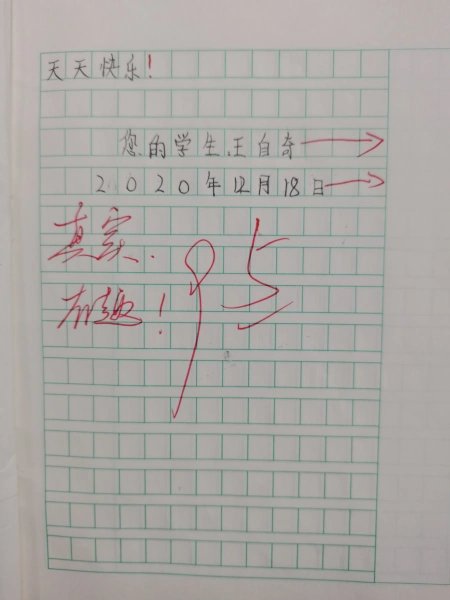 天天快乐!
您的学生王自奇
2020年12月18日
真实.
有趣! 95